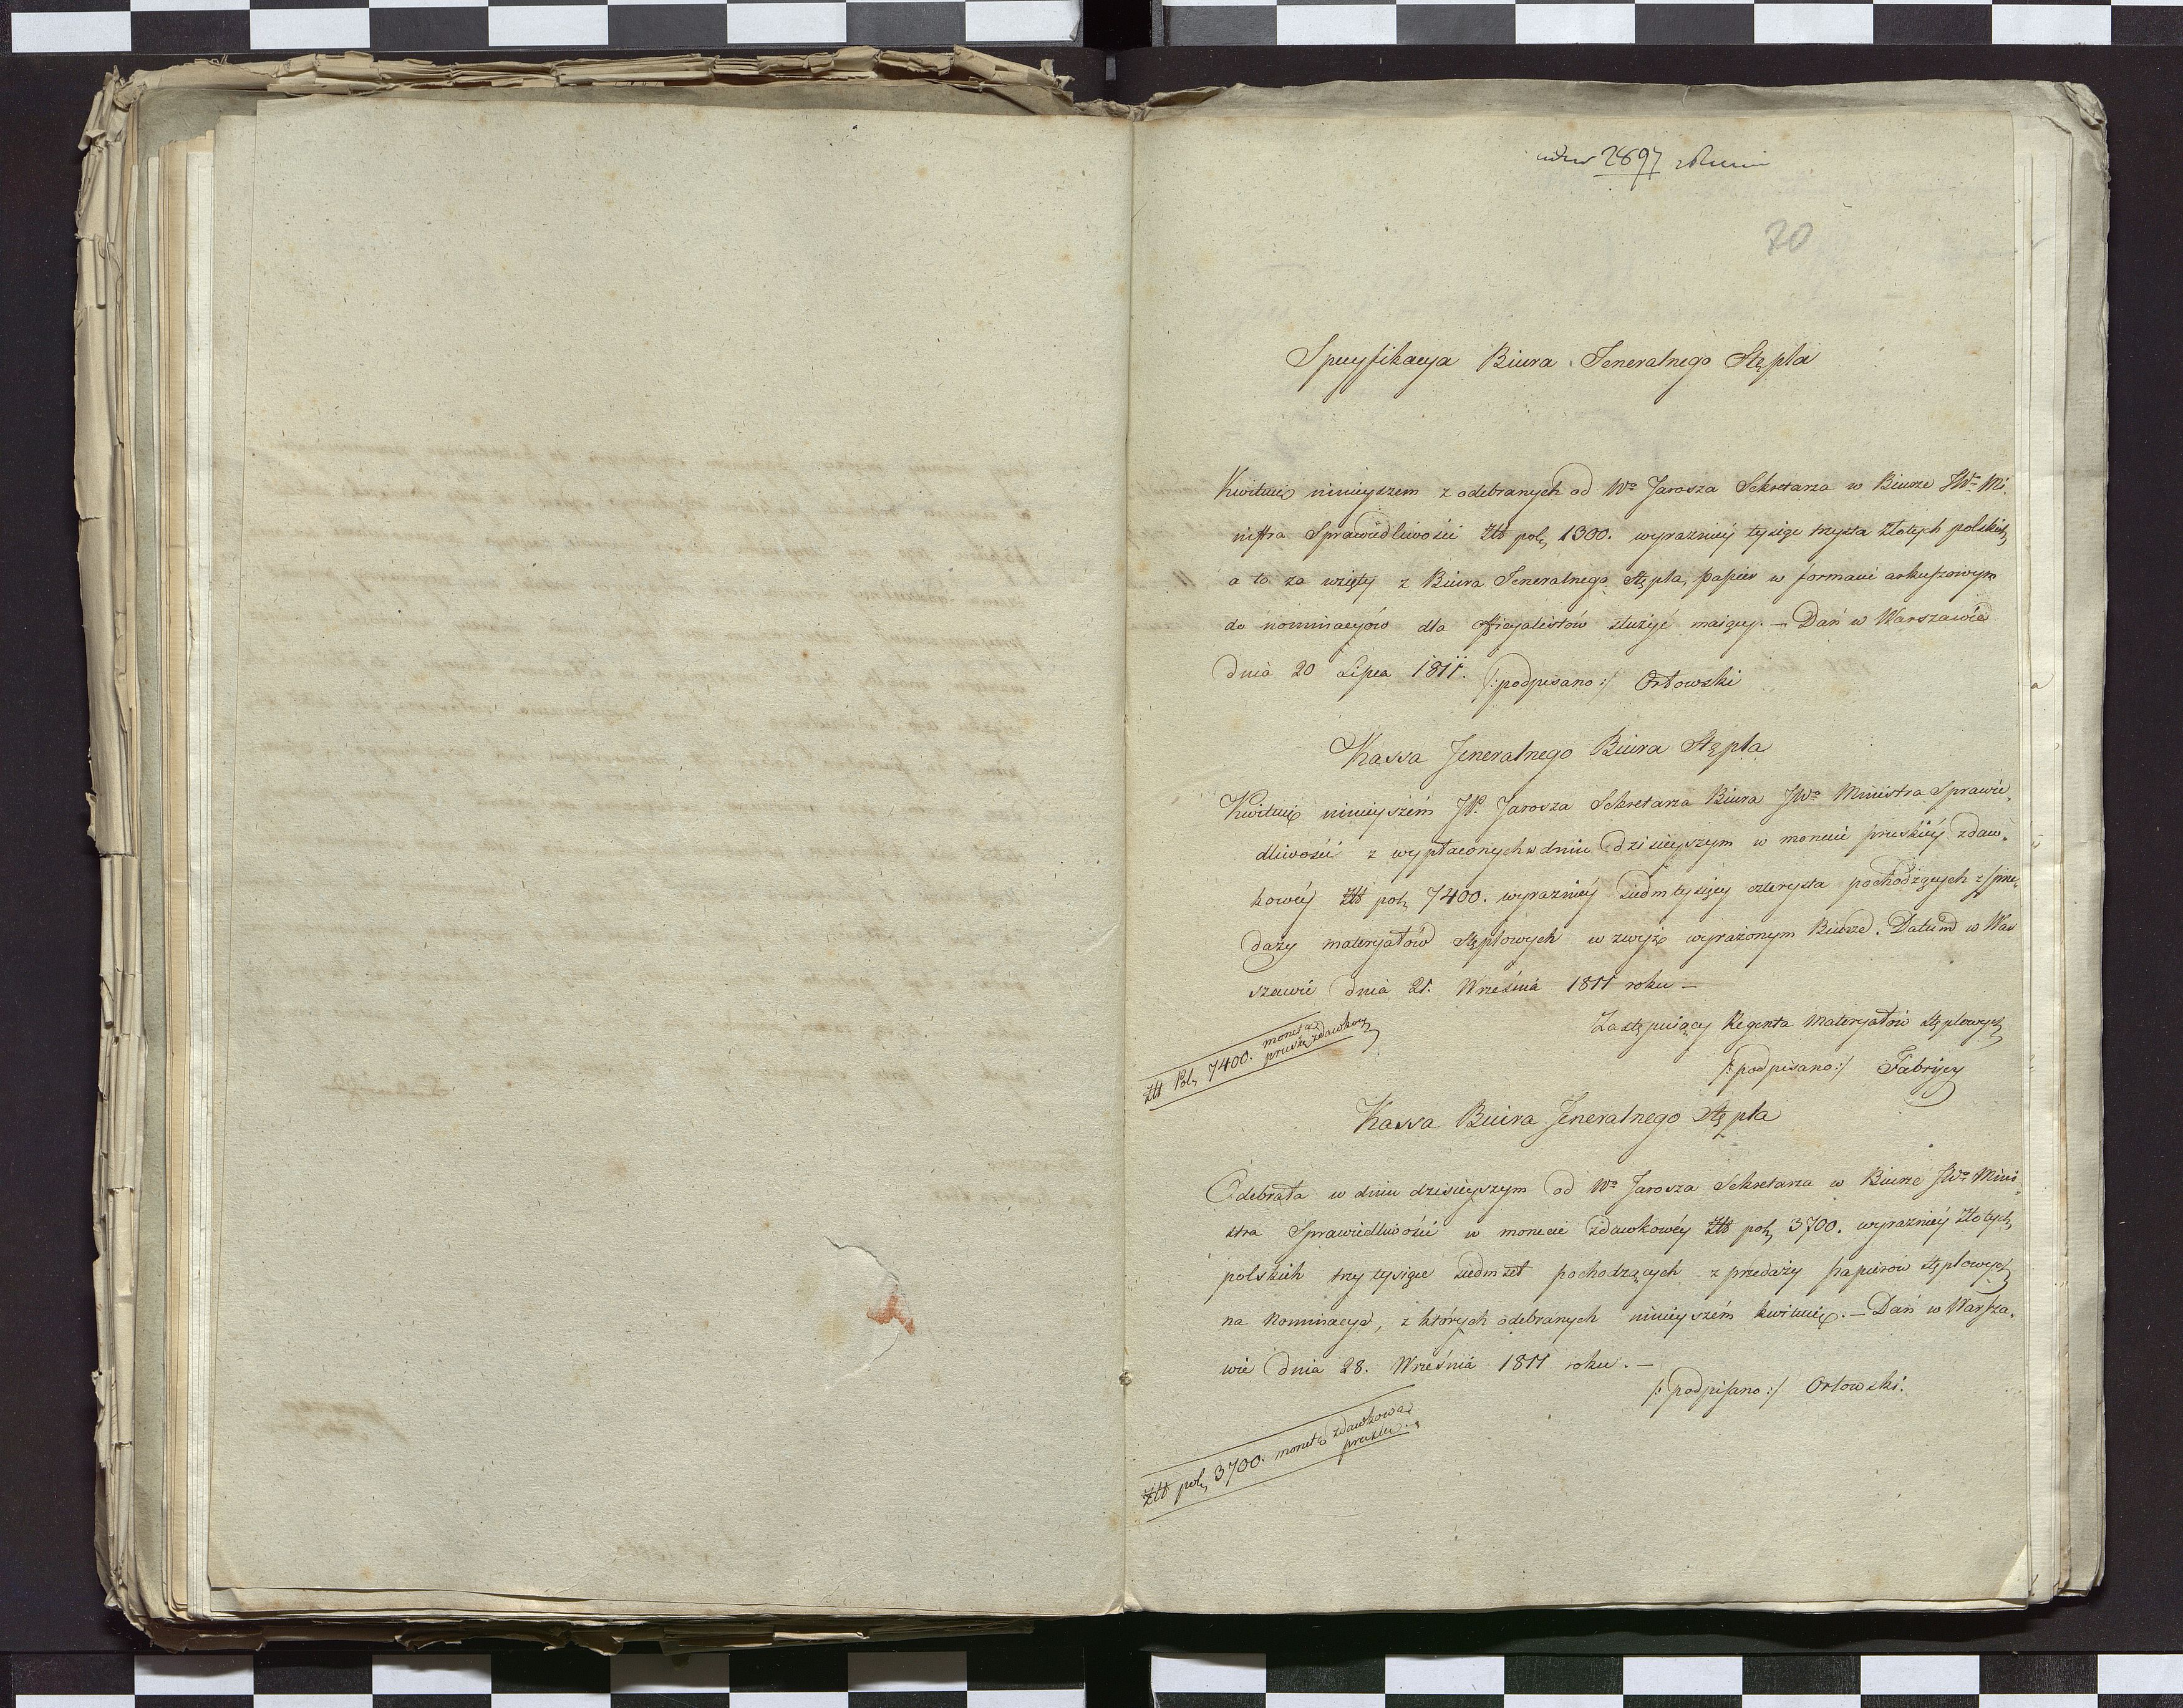 2897
70
Specyfikacya Biura Jeneralnego Stępla
Kwituię ninieyszem z odebranych od Wo Jarosza Sekretarza w Biurze JWo Mi,
nistra Sprawiedliwości Złt pol, 1300. wyraźniéy tysiąc trzysta Złotych polskich,
a to za wzięty z Biura Jeneralnego Stępla, papier w formacie arkuszowym
do nominacyów dla Officyalistów służyć maiący. — Dań w Warszawie
dnia 20 Lipca 1811. /:podpisano:/ Orłowski
Kassa Jeneralnego Biura Stępla
Kwituię ninieyszém JP. Jarosza Sekretarza Biura JWo Ministra Sprawie,
dliwości z wypłaconych w dniu dzisieyszym w monecie pruskiéy zdaw,
kowéy Złt pol, 7400. wyraźniéy siedm tysięcy czterysta pochodzących z sprze,
daży materyałów stęplowych w zwyż wyrażonym Biurze. Datum w War
szawie dnia 21. Września 1811 roku —
Zastępuiący Regenta Materyałów stęplowych,
Złt Pol, 7400. monetą prusk, zdawkow,
/:podpisano:/ Fabrycy
Kassa Biura Jeneralnego Stępla
Odebrała w dniu dzisieyszym od Wo Jarosza Sekretarza w Biurze JWo Mini,
stra Sprawiedliwości w monecie zdawkowéy Złt pol, 3700. wyraźniéy Złotych,
polskich trzy tysiące siedmset pochodzących z przedaży papierów stęplowych,
na Nominacye, z których odebranych ninieyszém kwituię. — Dań w Warsza,
wie dnia 28. Września 1811 roku. —
/:podpisano:/ Orłowski.
Złt pol, 3700. monetą zdawkową pruską.